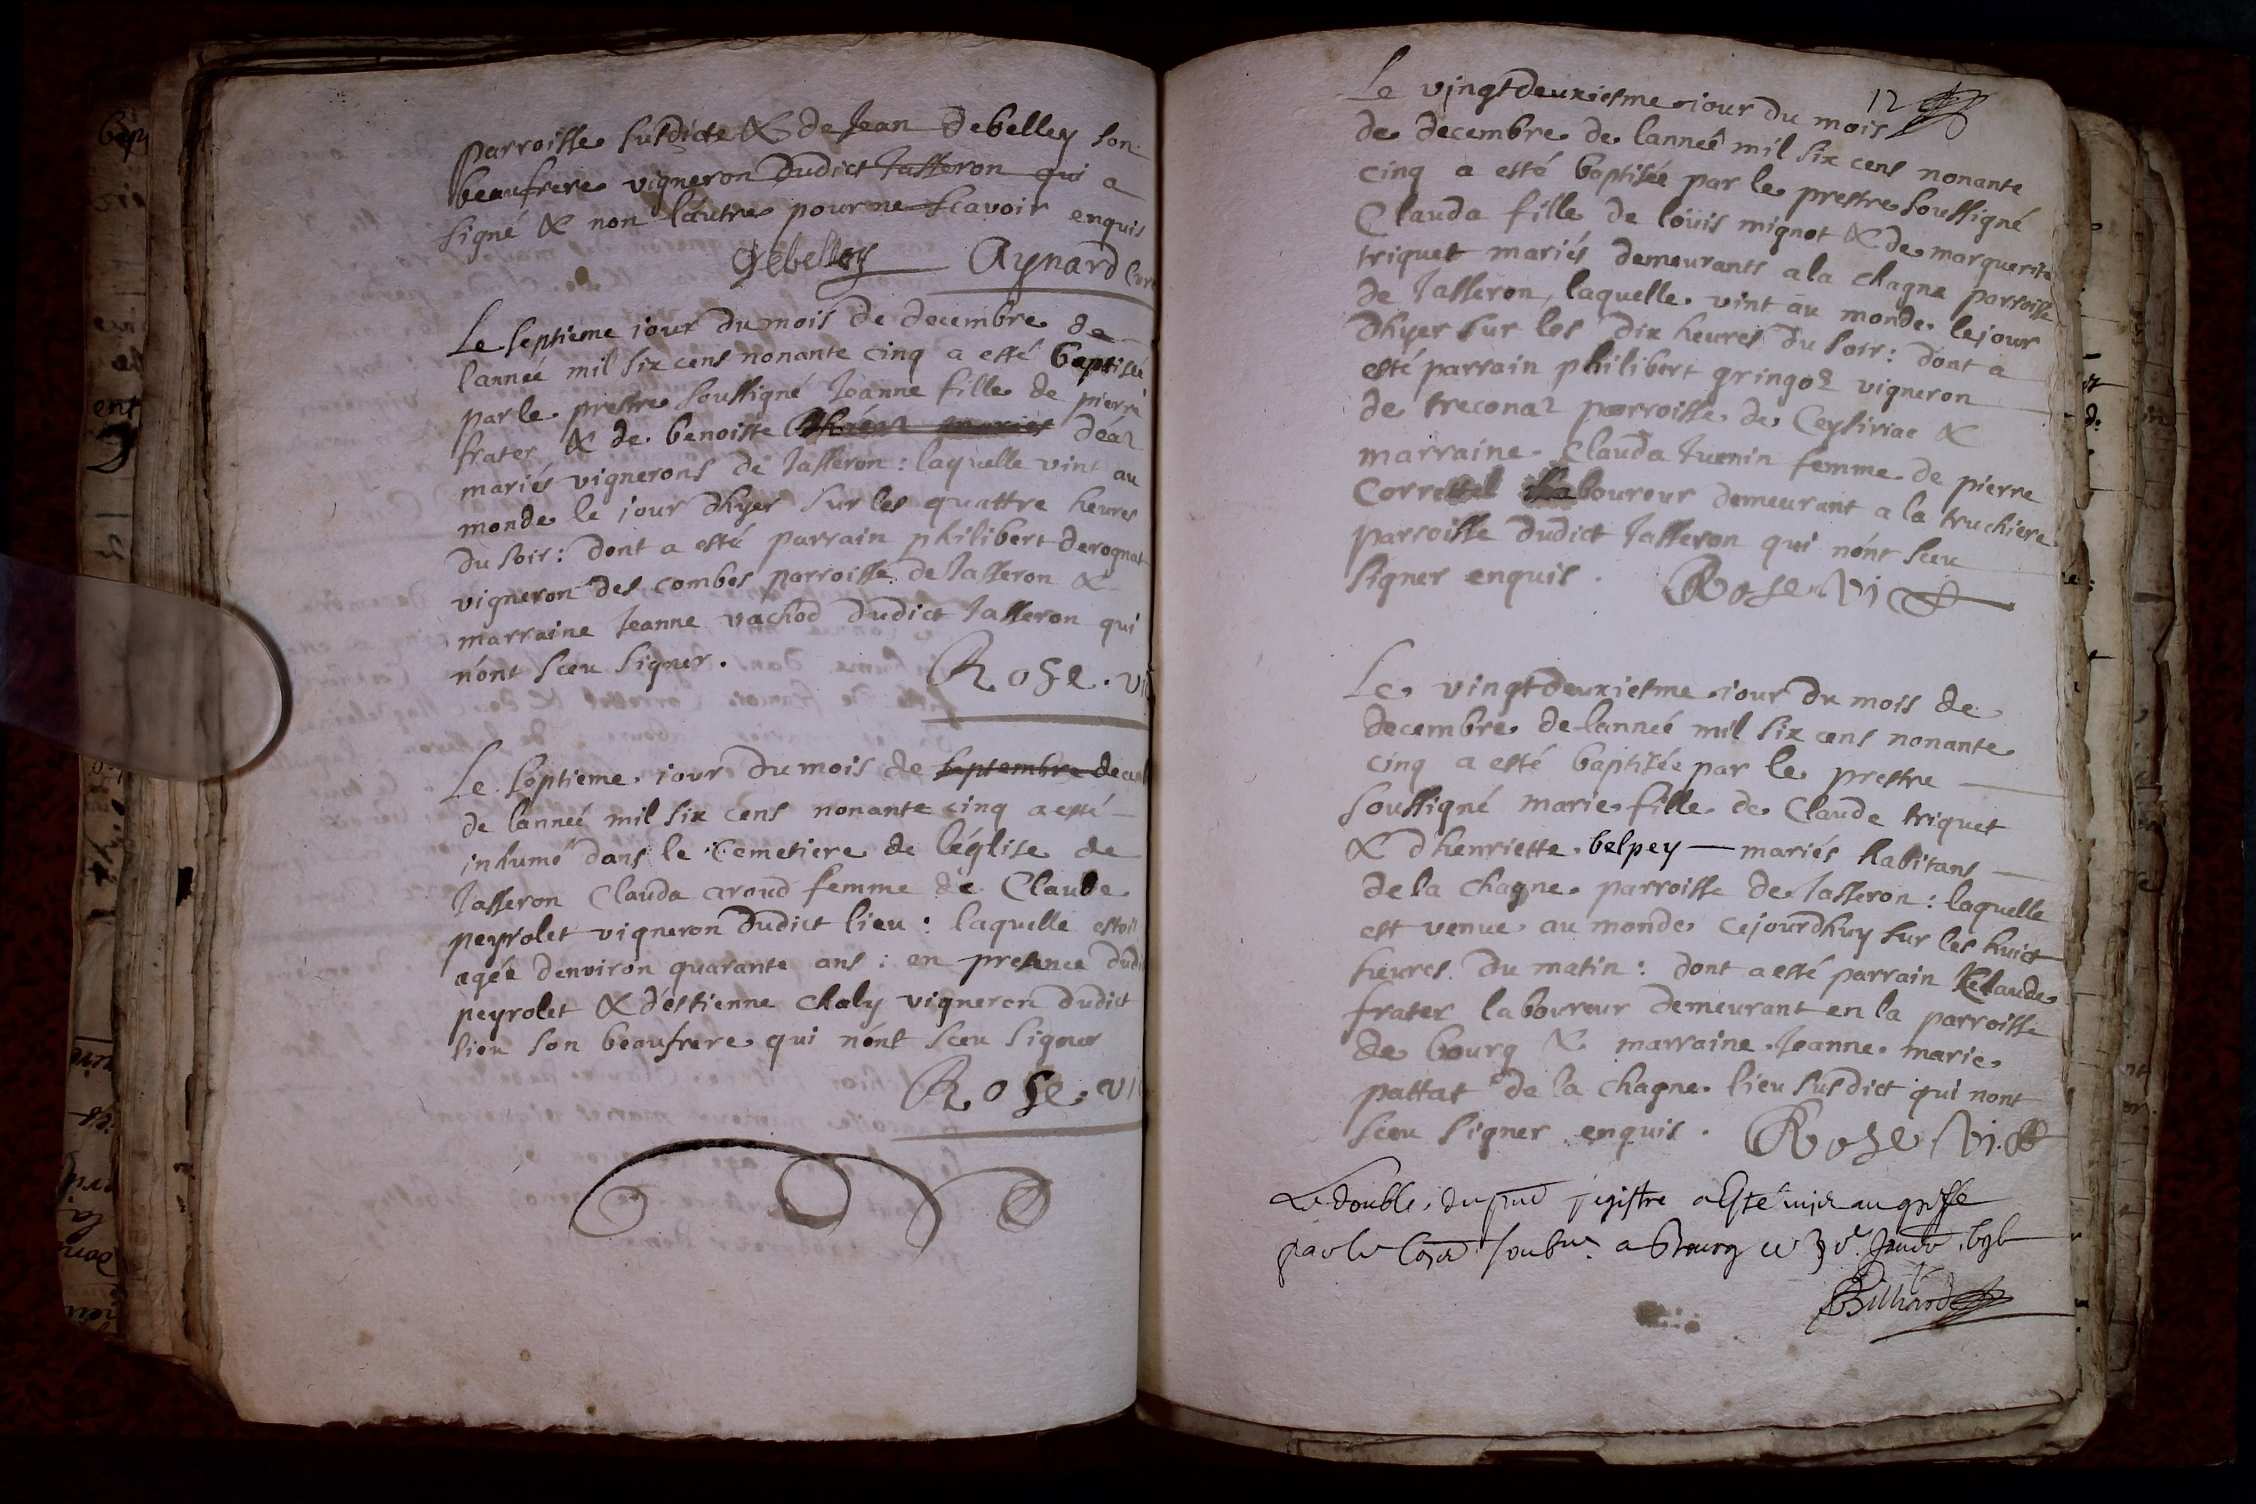 parroisse susdicte & de Jean debelley son
beaufrere vigneron dudict Jasseron qui a
signé & non l'autre pour ne scavoir enquis
debelley Aynard curé
Le septieme jour du mois de decembre de
lannéé mil six cens nonante cinq a esté baptiséé
par le prestre soussigné Jeanne fille de pierre
frater & de benoiste déaz
mariés vignerons de Jasseron : laquelle vint au
monde le jour dhyer sur les quattre heures
du soir : dont a esté parrain philibert derognat
vigneron des combes parroisse de Jasseron &
marraine Jeanne vachod dudict Jasseron qui
n'ont sceu signer .
Rose . vic
Le septieme jour du mois de septembre decemb
de lannéé mil six cens nonante cinq a esté
inhumé dans le cemetiere de léglise de
Jasseron Clauda aroud femme de Claude
peyrolet vigneron dudict lieu : laquelle estoit
agéé denviron quarante ans : en presence dudi
peyrolet & destienne chaly vigneron dudict
lieu son beaufrere qui n'ont sceu signer
Rose . vic
12
Le vingtdeuxiesme jour du mois
de decembre de lannéé mil six cens nonante
cinq a esté baptiséé par le prestre soussigné
Clauda fille de loüis mignot & de marguerite
triquet mariés demeurants a la chagne parroisse
de Jasseron, laquelle vint au monde le jour
dhyer sur les dix heures du soir : dont a
esté parrain philibert gringoz vigneron
de treconaz parroisse de Ceysiriac &
marraine Clauda Juenin femme de pierre
Correttel laboureur demeurant a la truchiere
parroisse dudict Jasseron qui n'ont sceu
signer enquis . Rose vic
Le vingtdeuxiesme jour du mois de
decembre de lannéé mil six cens nonante
cinq a esté baptizéé par le prestre
soussigné marie fille de Claude triquet
& dhenriette belpey mariés habitans
de la chagne parroisse de Jasseron : laquelle
est venue au monde cejourdhuy sur les huict
heures du matin : dont a esté parrain Claude
frater laboureur demeurant en la parroisse
de bourg & marraine Jeanne marie
pattat de la chagne lieu susdict qui n'ont
sceu signer enquis . Rose vic
Le double du pnt registre a Esté mis au greffe
par le a Bourg ce
Billiard